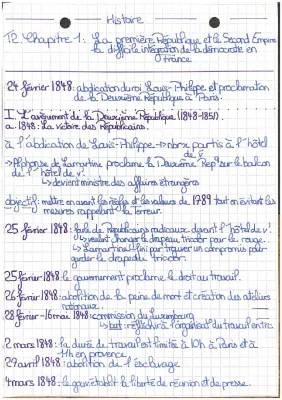 Histoire
T2. Chapitre 1: La première République et le Second Empire
la difficile intégration de la démocratie en
France
24 février 1848: abdication du roi Louis-Philippe et proclamation
de la Deuxième République à Paris.
I. L'avènement de la Deuxième République (1848-1851).
a. 1848: La victoire des Républicains.
à l'abdication de Louis-Philippe → nbrx partis à l'hôtel
de v!
→ Alphonse de Lamartine proclame la Deuxième Rep° sur le balcon
de l'hôtel de v!
↳ devient ministre des affaires étrangères
objectif: mettre en avant les règles et les valeurs de 1789 tout en évitant les
mesures rappelant la Terreur.
25 février 1848: foule de Républicains radicaux devant l'hôtel de v!
↳ veulent changer le drapeau tricolor par le rouge.
↳ Lamartine fini par trouver un compromis pour
garder le drapeau tricolor.
25 février 1848: le gouvernement proclame le droit au travail.
26 février 1848: abolition de la peine de mort et création des ateliers
nationaux.
28 février - 16 mai 1848: commission du Luxembourg
↳ but: réfléchir à l'organisat° du travail entre
2 mars 1848: la durée du travail est limitée à 10h à Paris et à
11h en province
27 avril 1848: abolition de l'esclavage.
4 mars 1848: le gouv établit la liberté de réunion et de presse.